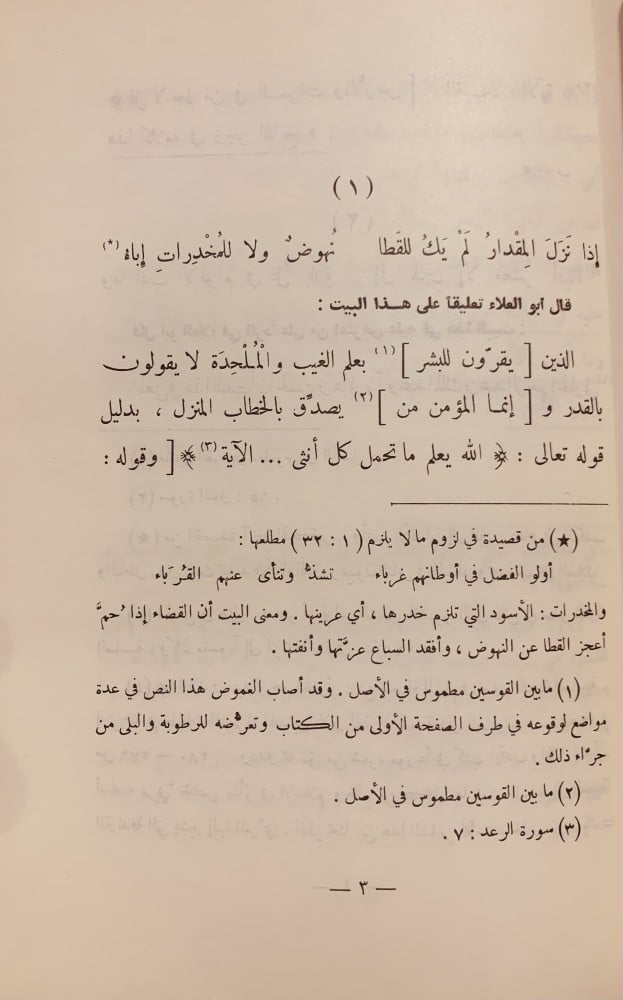 (١)
إِذا نَزَلَ المِقْدارُ لَمْ يَكُ للقَطا نُهوضٌ ولا للمُخْدِراتِ إِباءُ (*)
قال أبو العلاء تعليقاً على هــذا البيت :
الذين [ يقرّون للبشر ] (١) بعلم الغيب والْمُلْحِدَة لا يقولون
بالقدر و [ إنمـا المؤمن من ] (٢) يصدِّق بالخطاب المنزل ، بدليل
قوله تعالى : ﴿ الله يعلم ما تحمل كل أنثى ... الآية (٣) ﴾ [ وقوله :
(★) من قصيدة في لزوم ما لا يلزم ( ١ : ٣٢ ) مطلعها :
أولو الفضل في أوطانهم غرباء تشذّ وتنأى عنهم القُرَباء
والمخدرات : الأسود التي تلزم خدرها ، أي عرينها . ومعنى البيت أن القضاء إذا حُمَّ
أعجز القطا عن النهوض ، وأفقد السباع عزَّتها وأنفتها .
(١) مابين القوسين مطموس في الأصل . وقد أصاب الغموض هذا النص في عدة
مواضع لوقوعه في طرف الصفحة الأولى من الكتاب وتعرُّضه للرطوبة والبلى من
جرّاء ذلك .
(٢) ما بين القوسين مطموس في الأصل .
(٣) سورة الرعد : ٧ .
— ٣ —